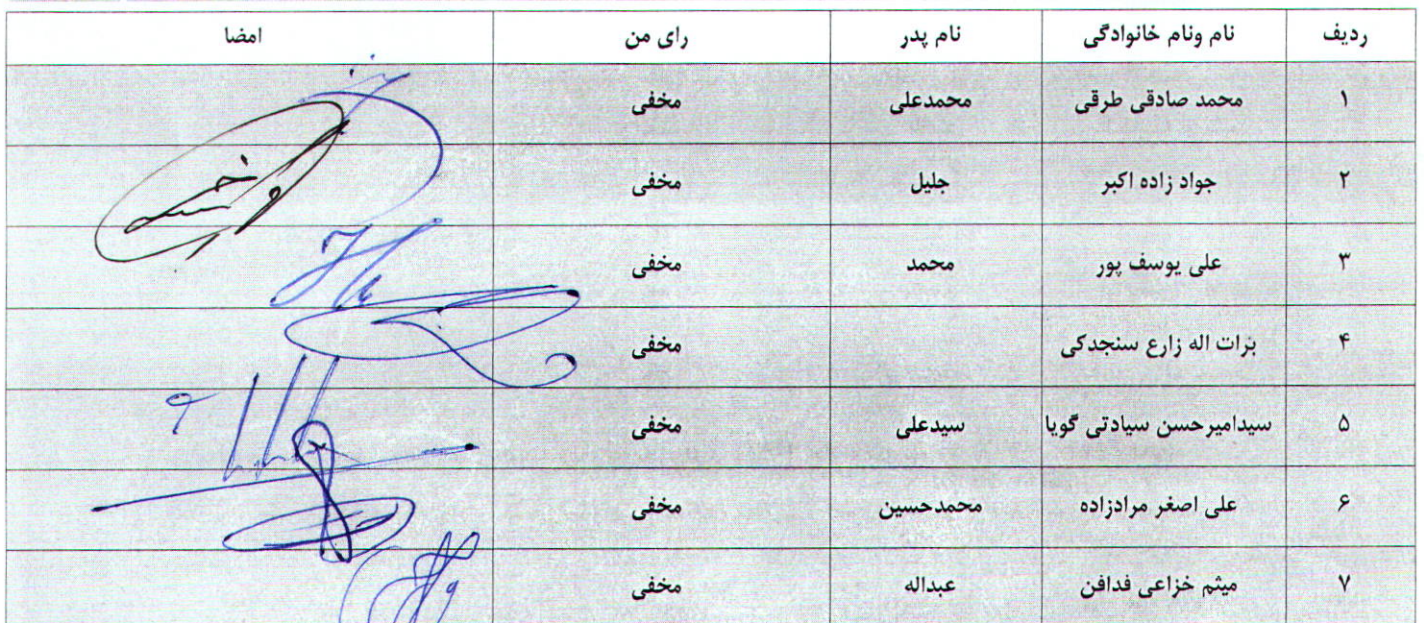 ردیف نام ونام خانوادگی نام پدر رای من امضا
۱ محمد صادقی طرقی محمدعلی مخفی
۲ جواد زاده اکبر جلیل مخفی
۳ علی یوسف پور محمد مخفی
۴ برات اله زارع سنجدکی مخفی
۵ سیدامیرحسن سیادتی گویا سیدعلی مخفی
۶ علی اصغر مرادزاده محمدحسین مخفی
۷ میثم خزاعی فدافن عبداله مخفی